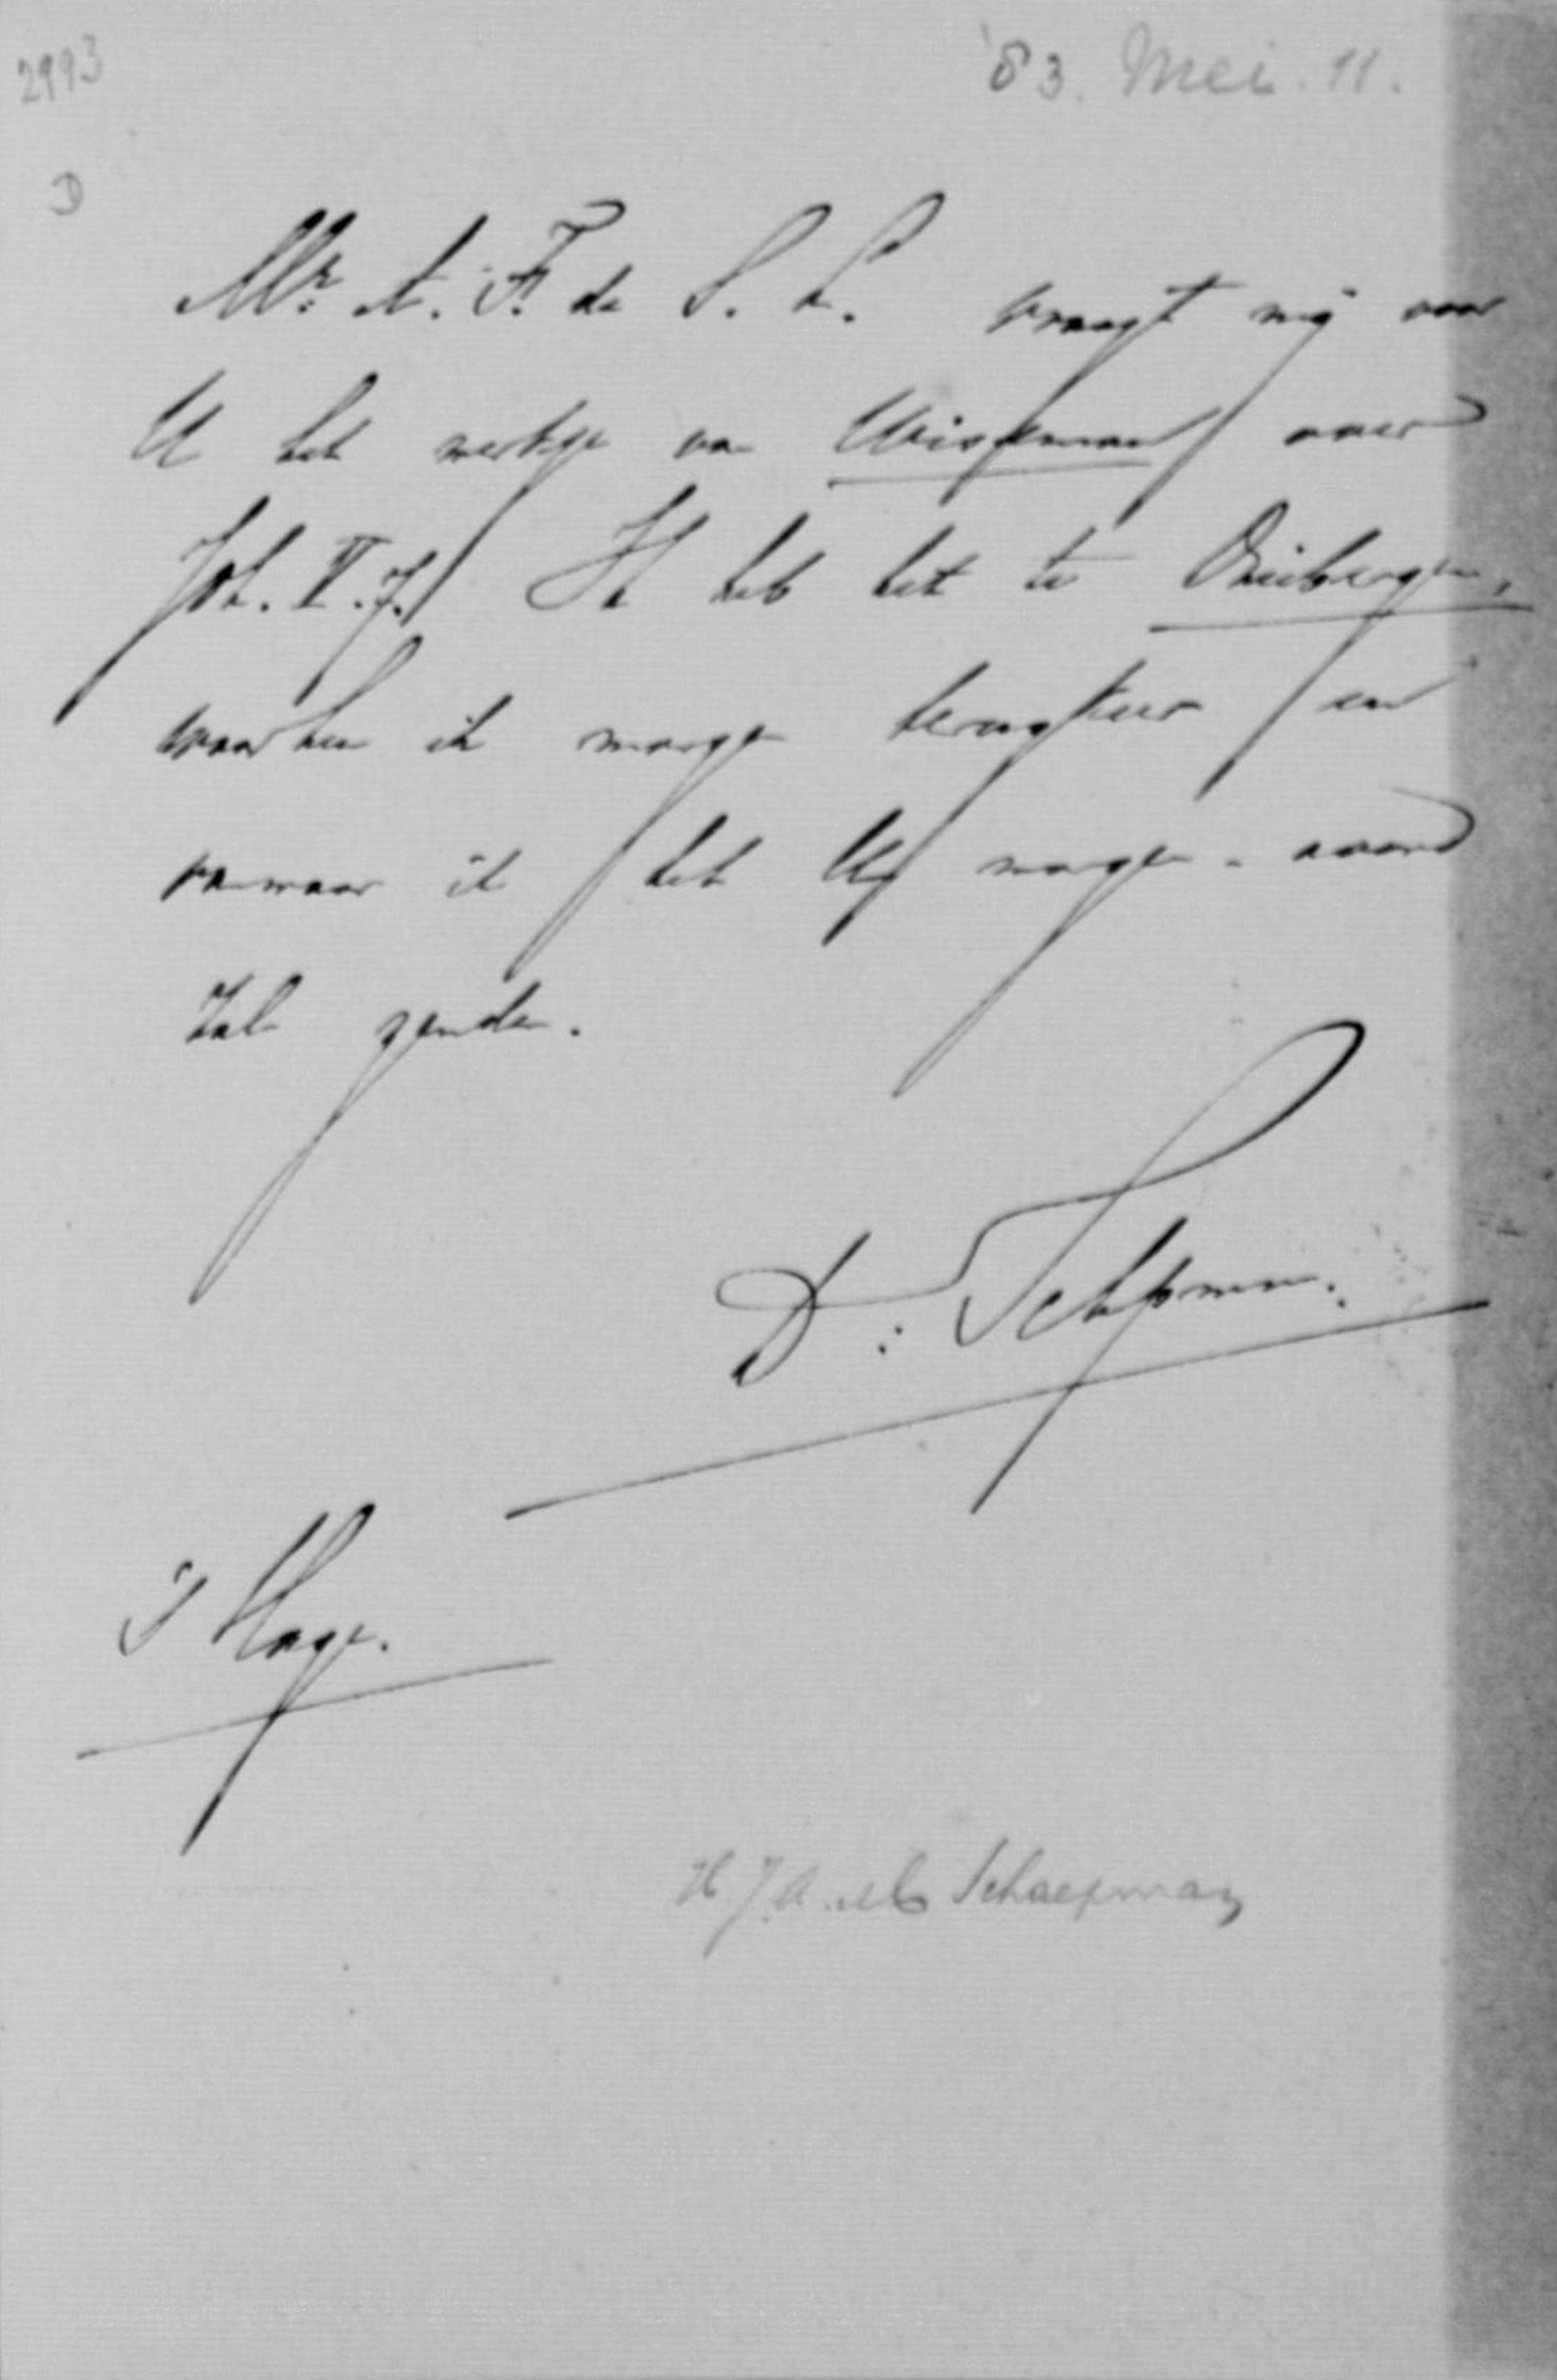 2993
'83. Mei. 11.
D
Mr. A. F. de S. L. vraagt mij voor
U het werkje van Wiseman over
Joh. II. Ik heb het te Driebergen,
waarheen ik morgen terugkeer en
vanwaar ik het U morgen-avond
zal zenden.
Dr. Schpman.
's Hage.
H. J. A. M. Schaepman